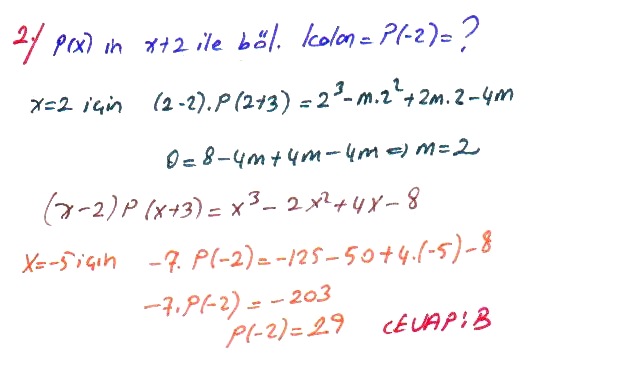 2-/ P(x) in x+2 ile böl. kalan = P(-2) = ?
x=2 için (2-2).P(2+3) = 2³-m.2²+2m.2-4m
0 = 8-4m+4m-4m => m=2
(x-2)P(x+3) = x³-2x²+4x-8
x=-5 için -7.P(-2) = -125-50+4.(-5)-8
-7.P(-2) = -203
P(-2) = 29 CEVAP: B